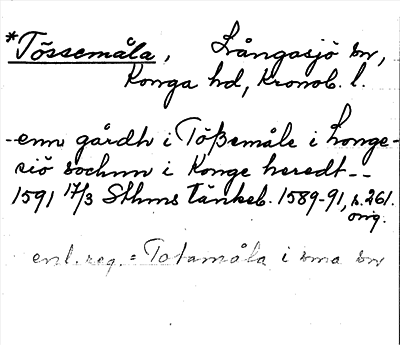 *Tössemåla, Långasjö sn,
Konga hd, Kronob. l.
--enn gårdh i Tößemåle i Longe-
siö sochnn i Konge heredt--
1591 17/3 Sthms Tänkeb. 1589-91, s. 261.
orig.
enl. reg. = Totamåla i sma sn